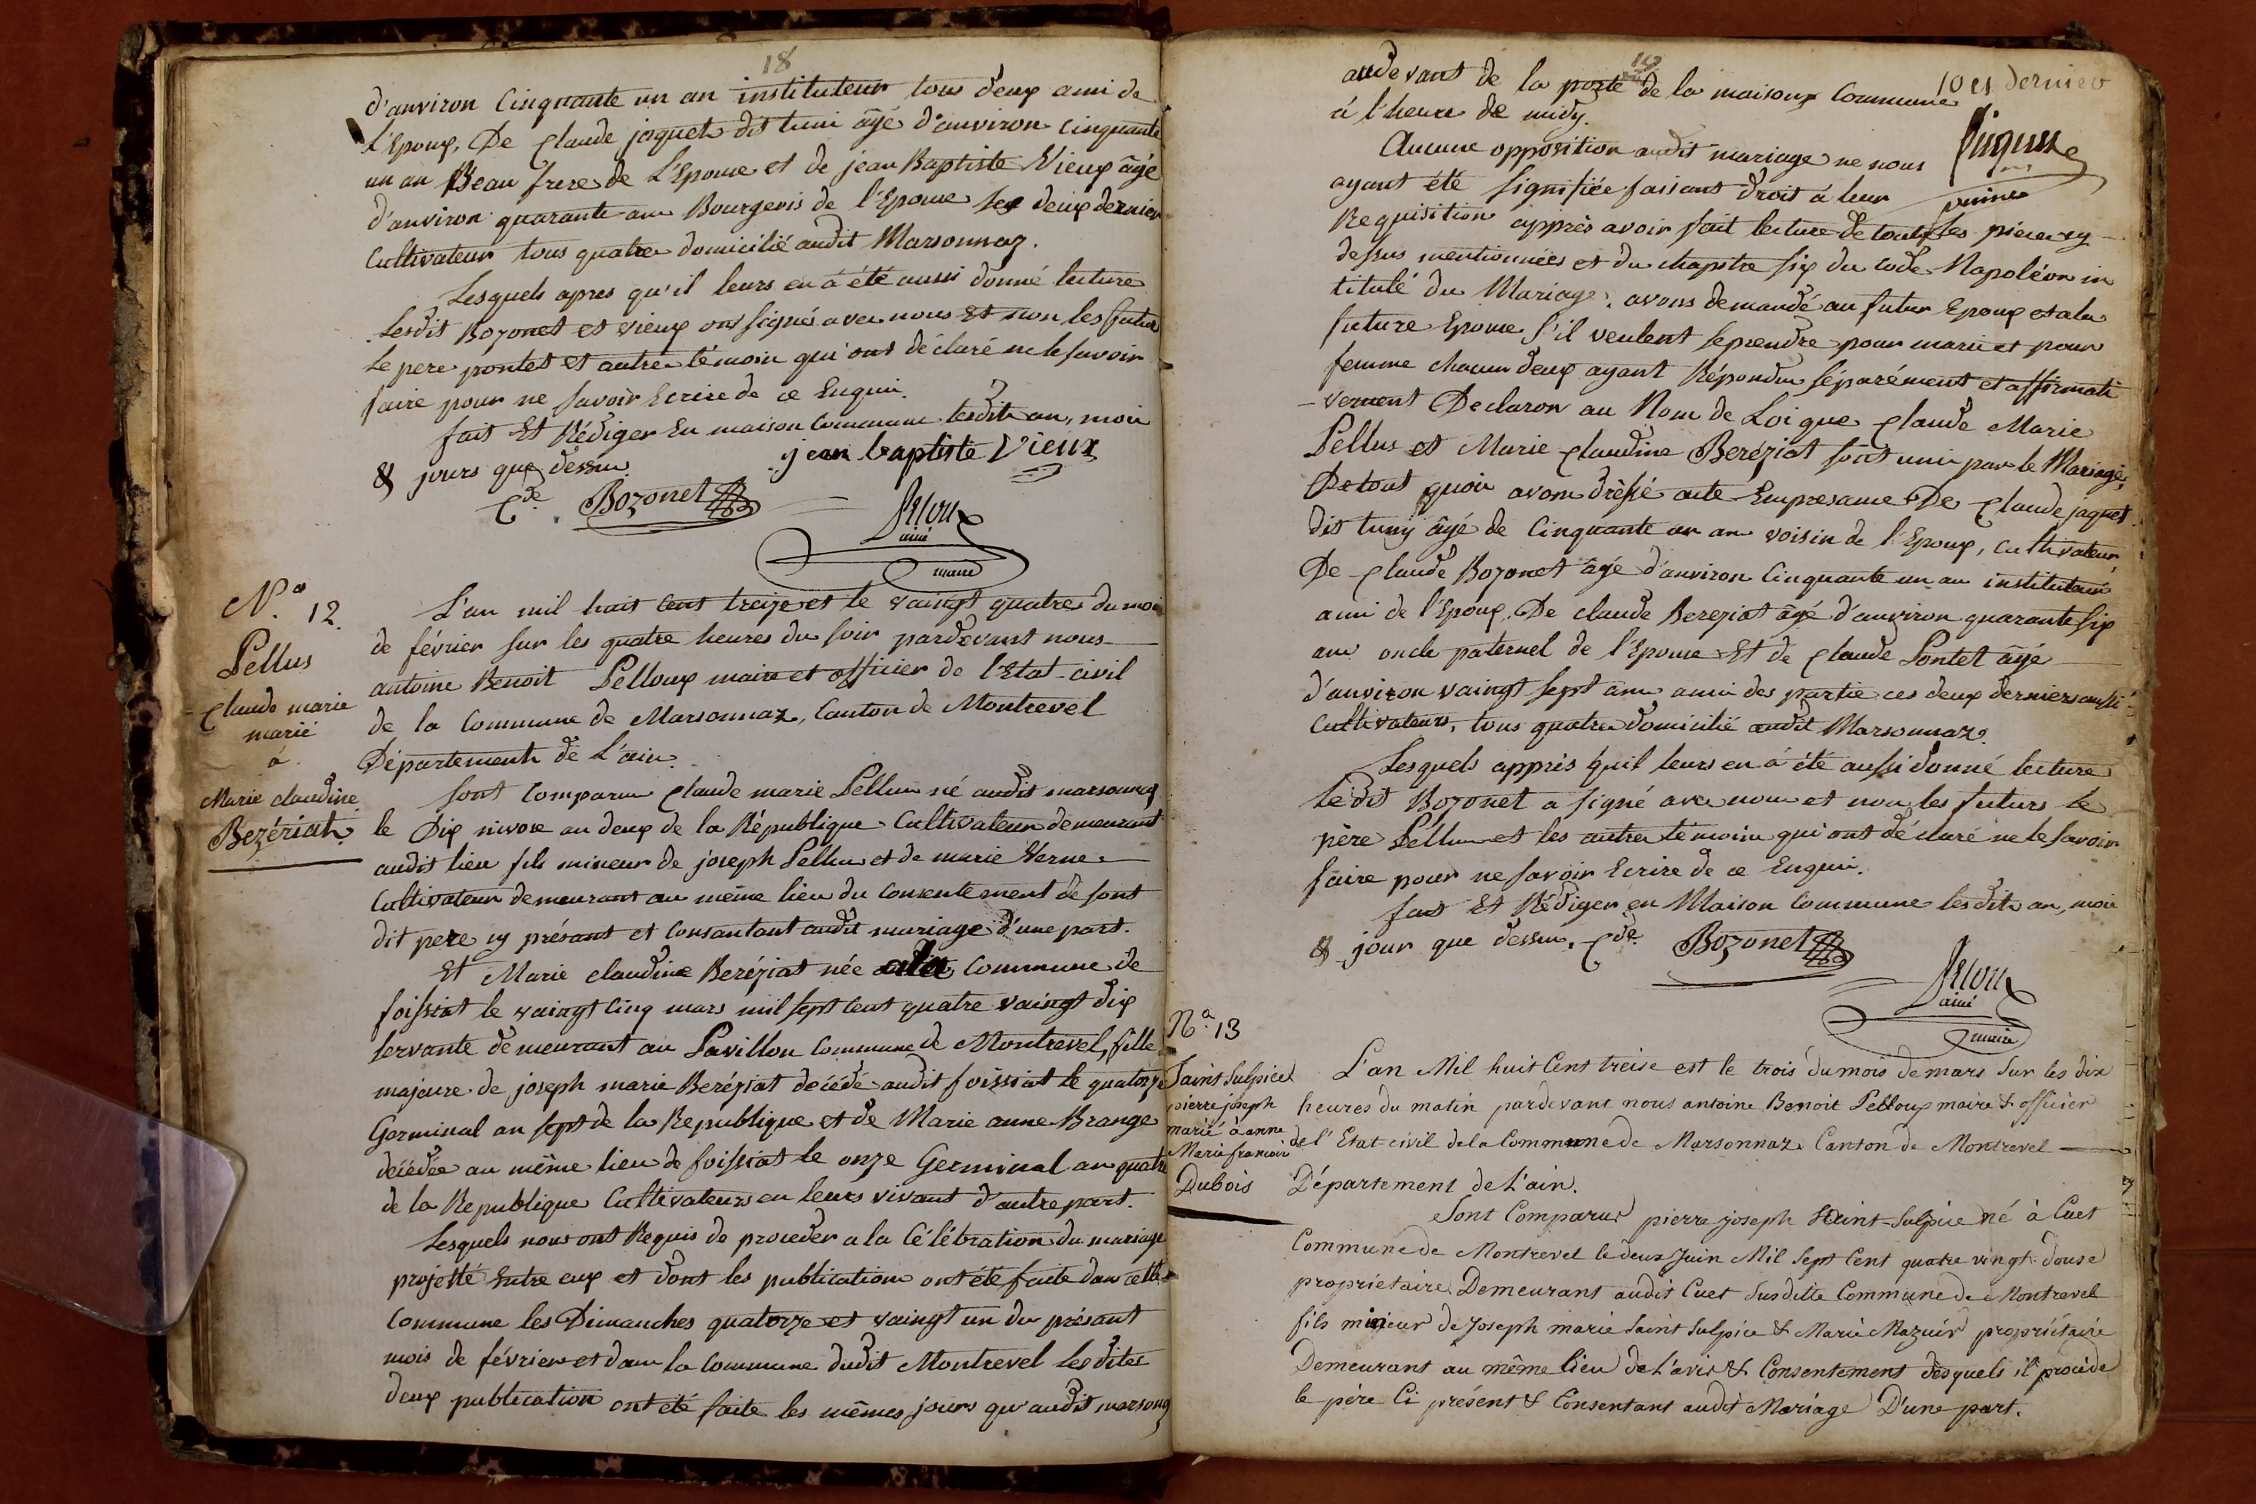 18
d'anviron Cinquante un an instituteur tous deux ami de
L'Epoux, De Claude jaquet dit tuni âgé d'anviron cinquante
un an Beau frere de L'Epouse et de jean Baptiste Vieux âgé
d'anviron quarante ans Bourgeois de l'Epouse les deux dernier
Cultivateur tous quatre domicilié audit Marsonnaz.
Lesquels apres qu'il leurs en à été aussi donné lecture
Lesdit Bozonet et vieux ont signés avec nous Et non les futur
Le pere pontet et autre témoin qui ont déclaré ne le savoir
faire pour ne savoir Ecrire de ce Enquii.
fait Et Rédiger En maison Commune lesdits an, mois
& jours que dessus.
jean baptiste Vieux
Cde Bozonet
Pelloux
ainé
maire
N.o 12.
Pellus
Claude marie
marié
à
Marie claudine
Bezériat
L'an mil huit Cent treize et le vaingt quatre du moi
de février sur les quatre heures du soir pardevant nous
antoine Benoit Pelloux maire et officier de l'Etat-civil
de la Commune de Marsonnaz, Canton de Montrevel
Département de L'ain.
Sont Comparu Claude marie Pellus né audit marsonnaz
le Dix nivose an deux de la République Cultivateur demeurant
audit lieu fils mineur de joseph Pellus et de marie Verne
Cultivateur demeurant au même lieu du Consentement de sont
dit pere cy présant et Consantant audit mariage d'une part.
Et Marie claudine Bereziat née a la Commune de
foissiat le vaingt Cinq mars mil sept Cent quatre vaingt dix
servante demeurant au Pavillon Commune de Montrevel, fille
majeure de joseph marie Beréziat décédé audit foissiat le quatorze
Germinal an sept de la Republique et de Marie anne Brange
décédée au même lieu de foissiat le onze Germinal an quatre
de la Republique Cultivateurs en leurs vivant d'autre part.
Lesquels nous ont Requis de proceder a la Célébration du mariage
projetté Entre eux et dont les publication ont été faite dans cette
Commune les Dimanches quatorze et vaingt un du présant
mois de février et dans la Commune dudit Montrevel Lesdites
deux publication ont été faite les mêmes jours qu'audit marsonnaz
19
10 et dernier
audevant de la porte de la maison Commune
à l'heure de midy.
Aucune opposition audit mariage ne nous
ayant été signifiée faisant droit à leur
Requisition appres avoir fait lecture de toutes les pieces cy
dessus mentionnées et du chapitre six du Code Napoléon in
titulé du Mariage, avons demandé au futur Epoux et a la
future Epouse s'il veulent seprendre pour marie et pour
femme chacun deux ayant Répondu séparément et affirmati
-vement Declaron au Nom de Loi que Claude Marie
Pellus et Marie Claudine Beréziat sont uni par le Mariage,
De tout quoi avons dréssé acte Empresance De Claude jaquet
dit tuny âgé de Cinquante un an voisin de l'Epoux, cultivateur,
De Claude Bozonet âgé d'anviron Cinquante un an instituteur
ami de l'Epoux, De Claude Bereziat âgé d'anviron quarante six
ans oncle paternel de l'Epouse Et de Claude Pontet âgé
d'anviron vaingt sept ans ami des partie ces deux derniers aussi
Cultivateurs, tous quatre domicilié audit Marsonnaz.
Lesquels appris qu'il leurs en à été aussi donné lecture
ledit Bozonet a signé avec nous et non les futurs le
père Pellus et les autre témoin qui ont déclaré ne le savoir
faire pour ne savoir Ecrire de ce Enquii.
fait Et Rédiger en Maison Commune lesdits an, mois
& jour que dessus. Cde Bozonet
Pelloux
ainé
maire
N.o 13
Saint Sulpice
pierre joseph
marié à anne
Marie francoise
Dubois
L'an Mil huit Cent treise est le trois du mois de mars sur les dix
heures du matin pardevant nous antoine Benoit Pelloux maire & officier
de l'Etat-civil de la Commune de Marsonnaz Canton de Montrevel
Département de L'ain.
Sont Comparus pierre joseph Saint-Sulpice né à Cuet
Commune de Montrevel le deux Juin Mil Sept Cent quatre vingt-douse
propriétaire Demeurant audit Cuet Susditte Commune de Montrevel
fils mineur de Joseph marie Saint Sulpice & Marie Mazuir propriétaire
Demeurant au même lieu de L'avis & Consentement desquels il procéde
le pére Ci présent & Consentant audit Mariage D'une part.